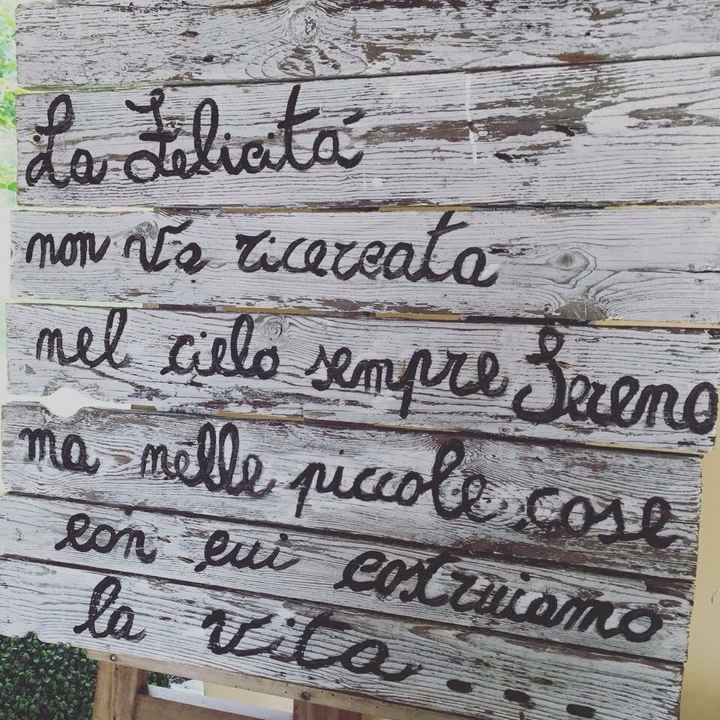 La Felicitá
non va ricercata
nel cielo sempre Sereno
ma nelle piccole cose
con cui costruiamo
la vita....